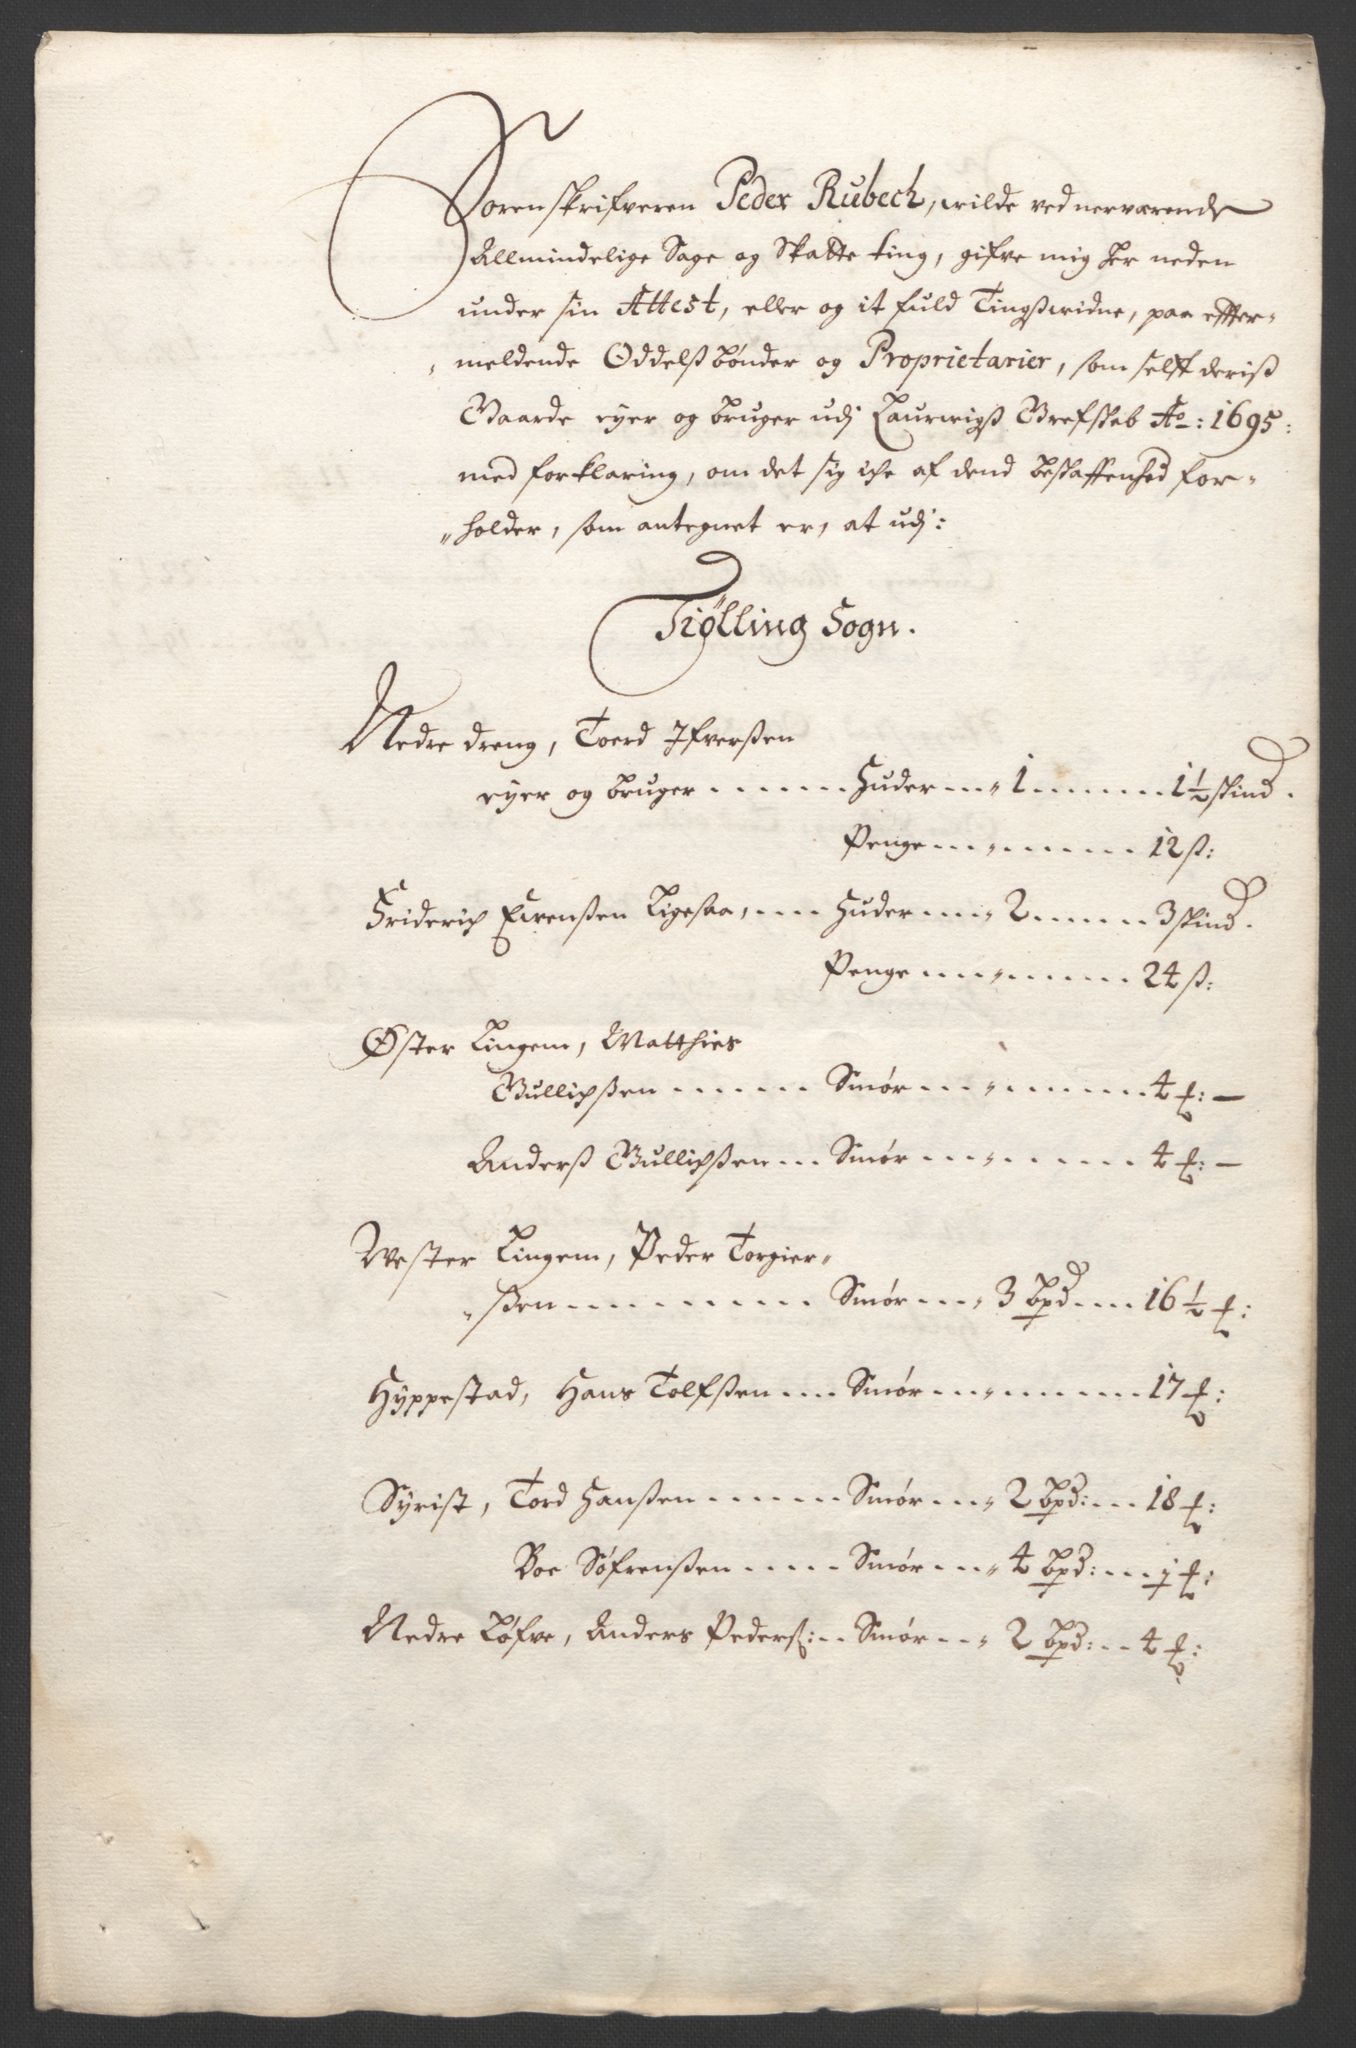 Sorenskrifveren Peder Rubech, wilde ved nerværende
Allmindelige Sage og Skatte ting, gifve mig her neden
under sin Attest, eller og it fuld Tingswidne, paa effter-
meldende Oddelsbønder og Proprietarier, som selff deriß
Gaarde eyer og bruger udj Laurwigß Grefskab Ao: 1695:
med forklaring, om det sig iche af dend beskaffenhed for-
holder, som antegnet er, at udj:
Tiølling Sogn.
Nedre dreng, Toerd Ifverßen
eyer og bruger ...... Huder ... 1 ...... 1½ skind.
Penge ... ...... 12 ß:
Friderich Ewenßen ligesaa, .... Huder .... 2 ..... 3 skind.
Penge .... ...... 24 ß:
Øster Lingem, Matthies
Gullichßen ...... Smør ... ...... 4 ℔: —
Anderß Gullichßen ... Smør ... ...... 4 ℔: —
Wester Lingem, Peder Torgier-
ßen ......... Smør ... 3 bpd .... 16½ ℔:
Hyppestad, Hans Tolfßen .... Smør ... ...... 17 ℔:
Syrist, Tord Hanßen ...... Smør ... 2 bpd: ... 18 ℔:
Boe Søfrenßen ..... Smør ... 4 bpd: ... 1 ℔:
Nedre Løfve, Anders Pederß: .. Smør ... 2 bpd: .. 4 ℔: